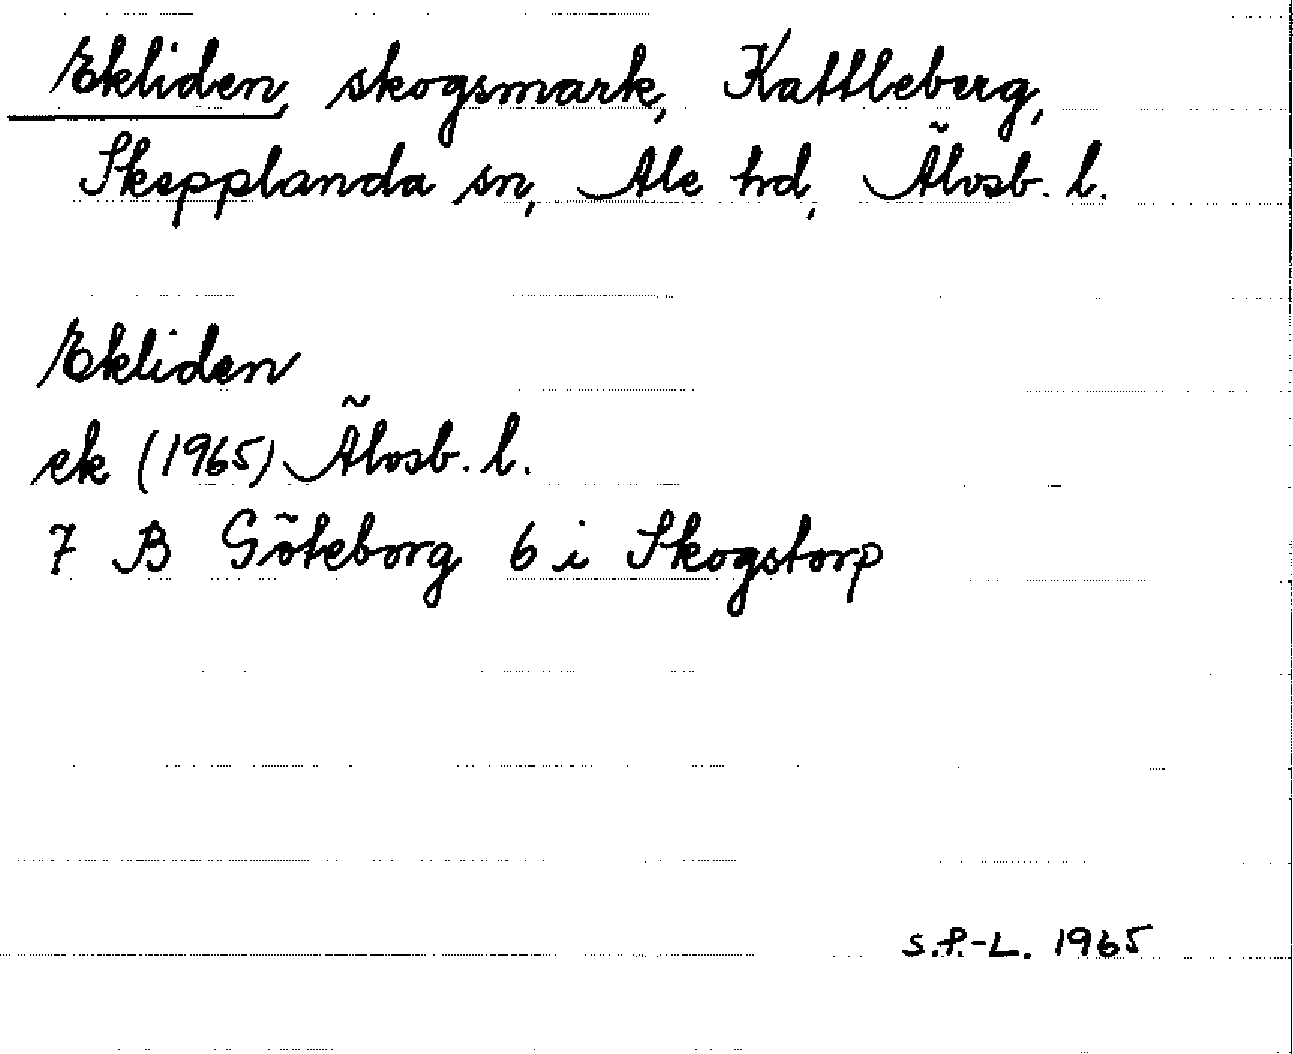 Ekliden, skogsmark, Kattleberg,
Skepplanda sn, Ale hd, Älvsb. l.
Ekliden
ek (1965) Älvsb. l.
7 B Göteborg 6 i Skogstorp
S.P.-L. 1965